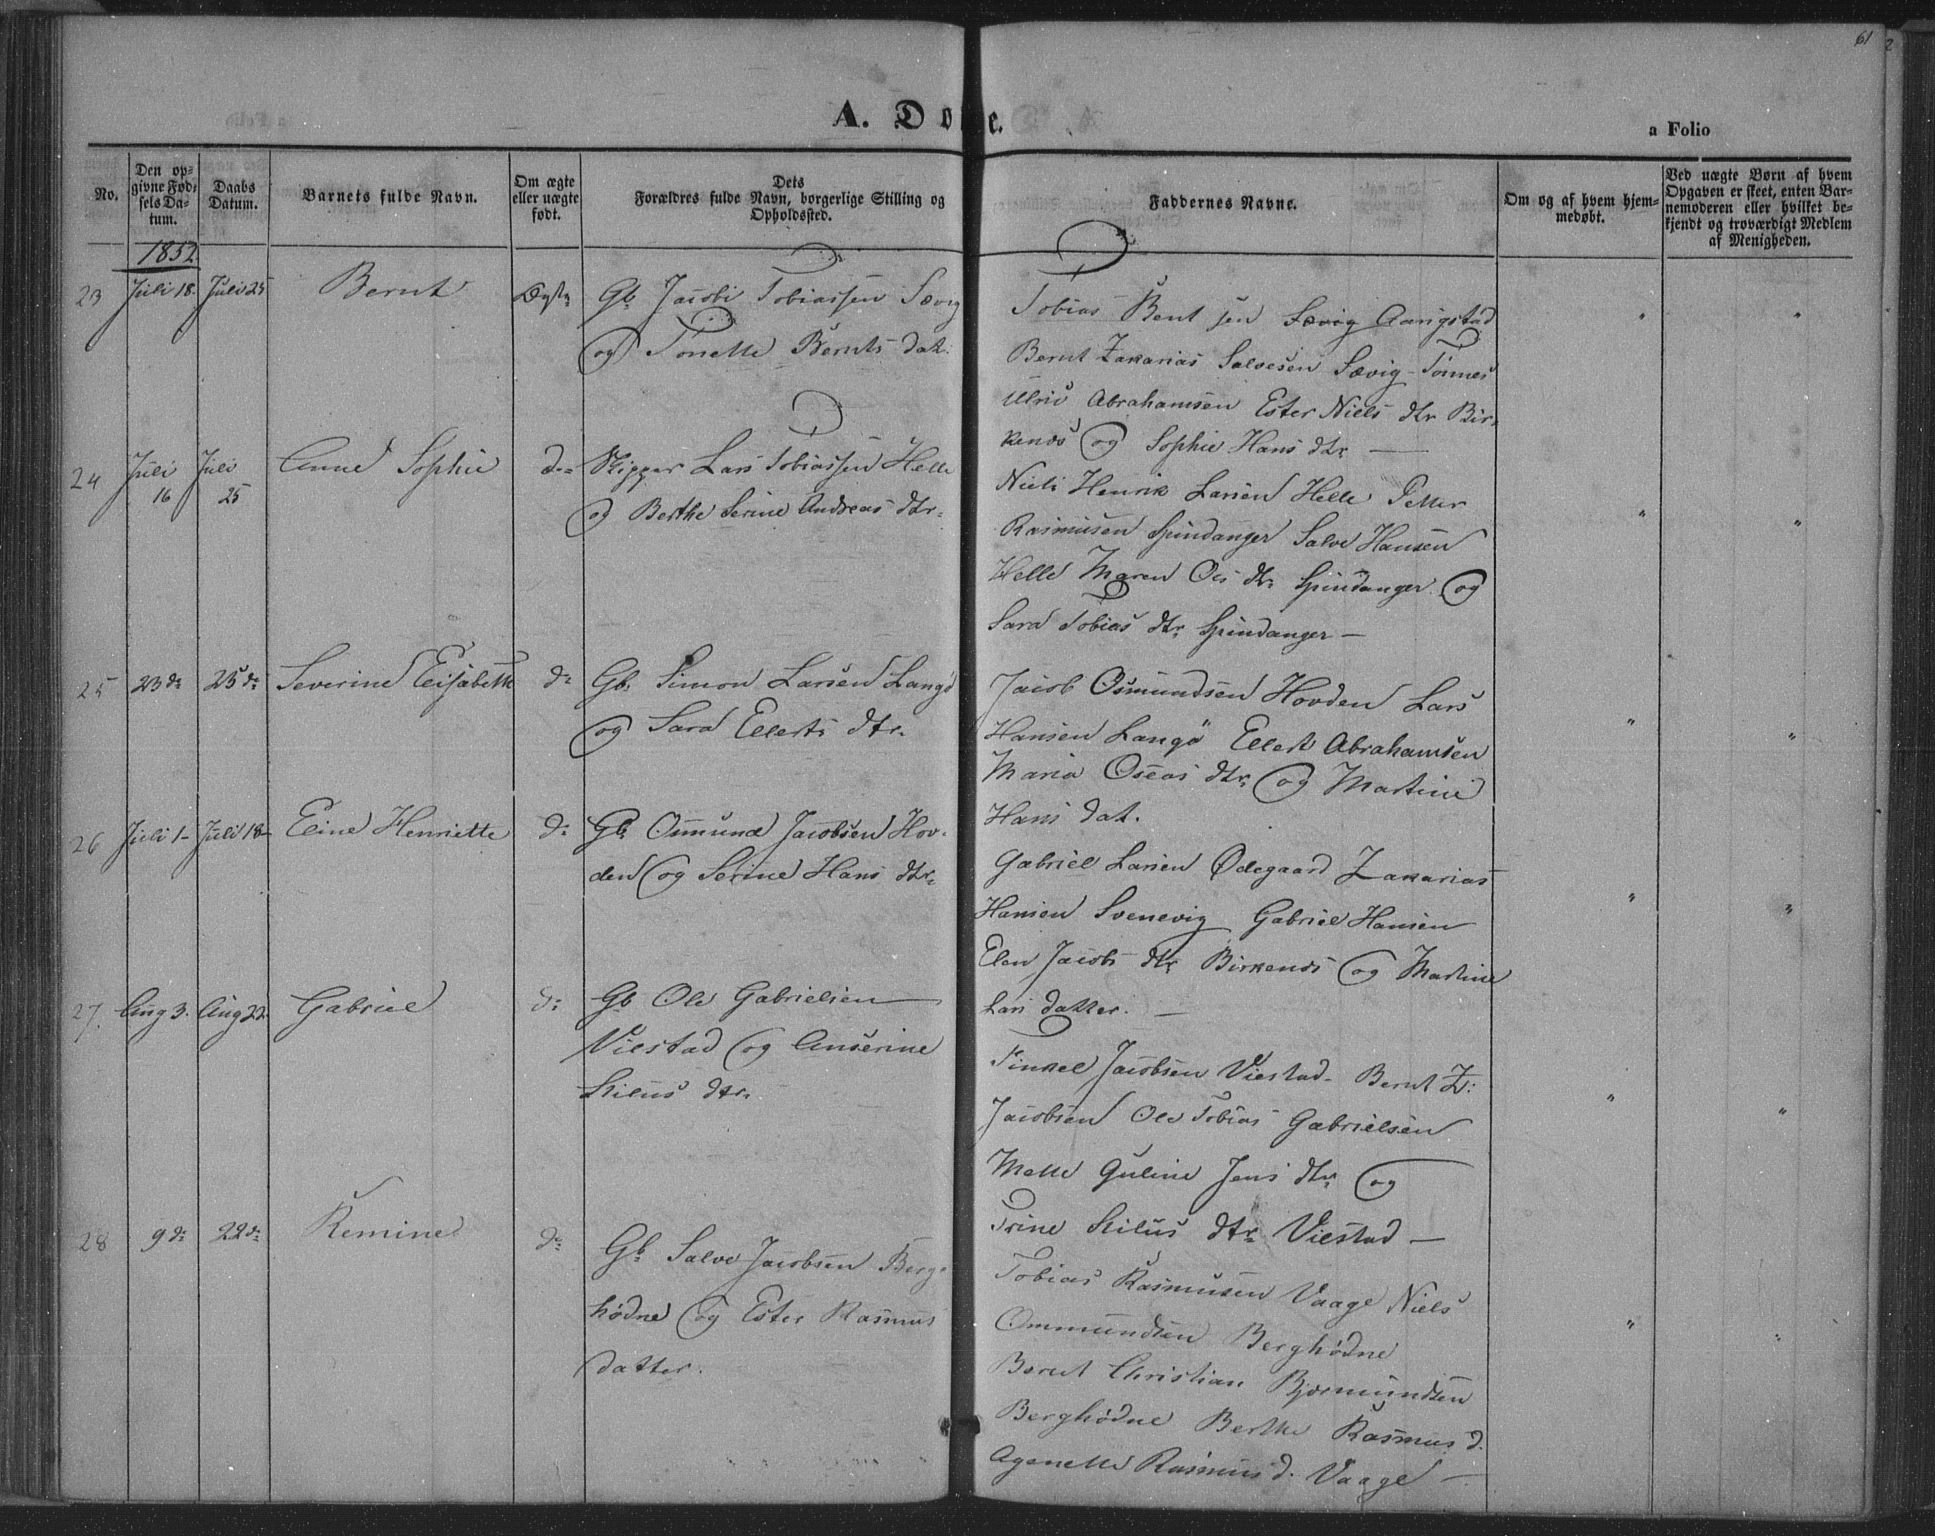 61
2
A. Døbte.
a Folio
No.
Den op=
givne Fød=
sels Da=
tum.
Daabs
Datum.
Barnets fulde Navn.
Om ægte
eller uægte
født.
Dets
Forældres fulde Navn, borgerlige Stilling og
Opholdssted.
Faddernes Navne.
Om og af hvem hjem=
medøbt.
Ved uægte Børn af hvem
Opgaven er skeet, enten Bar=
nemoderen eller hvilket be=
kjendt og troværdigt Medlem
af Menigheden.
1852
23 Juli 18. Juli 25 Bernt Ægte Gb. Jacob Tobiassen Sævig
og Tonette Bernts dat.
Tobias Bentsen Sævig Aarigstad
Bernt Zakarias Salvesen Sævig - Tönnes
Ulric Abrahamsen Ester Niels dtr Bir=
kenes og Sophie Hans dtr —
24 Juli 16 Juli 25 Anne Sophie do Skipper Lars Tobiassen Helle
og Berthe Serine Andreas dtr.
Niels Henrik Larsen Helle Petter
Rasmusen Spindanger Salve Hansen
Helle Maren Ols dtr Spindanger og
Sara Tobias dtr Spindanger —
25 23 do 25 do Severine Elisabeth do Gb. Simon Larsen Langø
og Sara Ellerts dtr.
Jacob Osmundsen Hovden Lars
Hansen Langö Ellert Abrahamsen
Maria Oseas dtr og Martine
Hans dat.
26 Juli 1- Juli 18- Eline Henriette do Gb. Osmund Jacobsen Hov=
den og Serine Hans dtr.
Gabriel Larsen Ødegaard Zakarias
Hansen Svenevig Gabriel Hansen
Elen Jacobs dtr Birkenes og Martine
Lars datter. —
27. Aug 3. Aug 22. Gabriel do Gb Ole Gabrielsen
Viestad og Anserine
Kilus dtr.
Tinkel Jacobsen Viestad - Bernt Z:
Jacobsen Ole Tobias Gabrielsen
Mette Guline Jens dtr og
Trine Kilus dtr Viestad —
28 9 do 22 do Remine do Gb Salve Jacobsen Berg=
hødne og Ester Rasmus
datter.
Tobias Rasmusen Vaage Niels
Ommundsen Berghødne
Bernt Christian Bjørnundsen
Berghødne Berthe Rasmus d.
Agenette Rasmus d. Vaage —